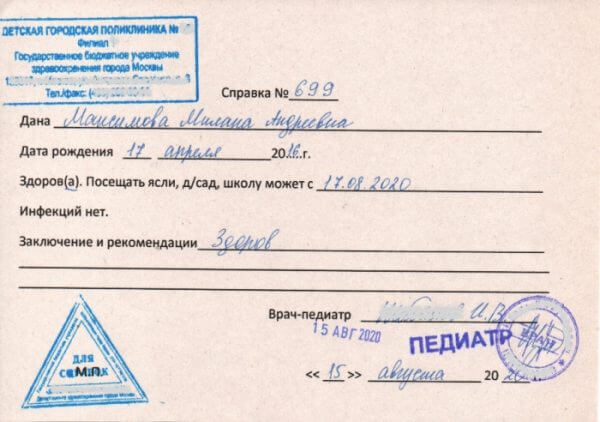 ДЕТСКАЯ ГОРОДСКАЯ ПОЛИКЛИНИКА №
Филиал
Государственное бюджетное учреждение
здравоохранения города Москвы
Тел./факс:
Справка № 699
Дана Максимова Милана Андреевна
Дата рождения 17 апреля 2016.г.
Здоров(а). Посещать ясли, д/сад, школу может с 17.08.2020
Инфекций нет.
Заключение и рекомендации Здоров
Врач-педиатр И.В.
15 АВГ 2020
ПЕДИАТР
ВРАЧ
<< 15 >> августа 2020
ДЛЯ
СПРАВОК
М.П.
Департамент здравоохранения города Москвы